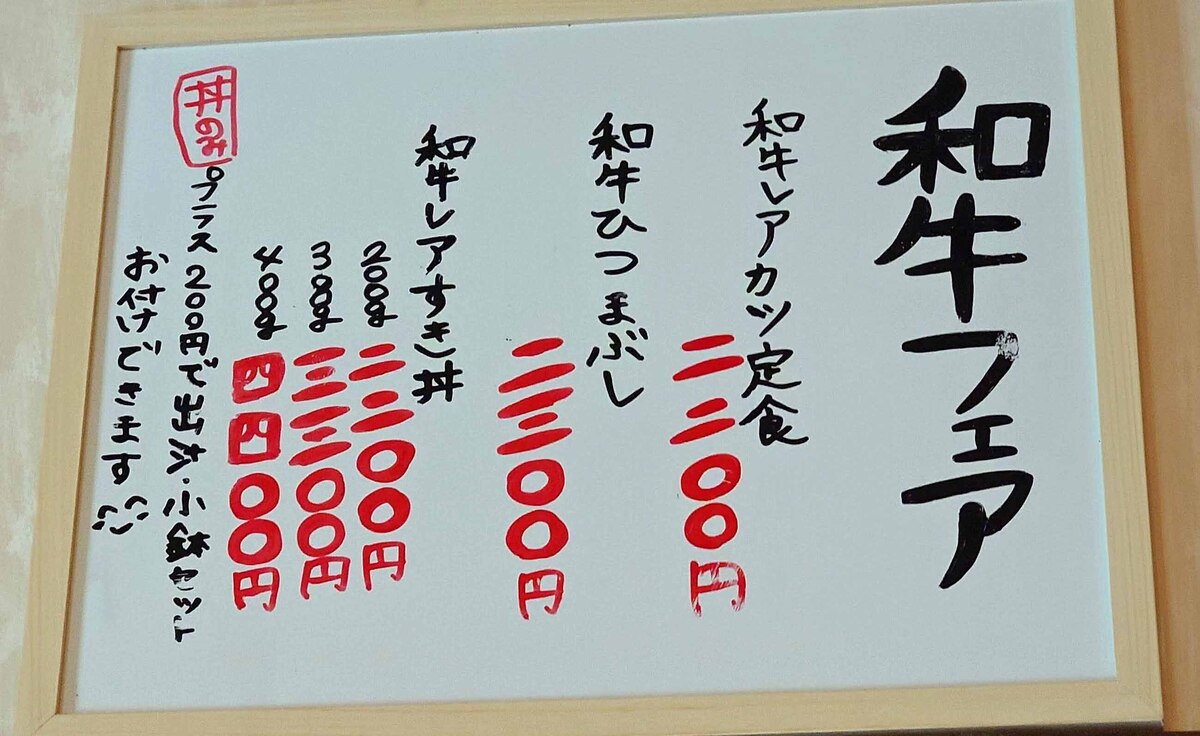 和牛フェア
和牛レアカツ定食
二二〇〇円
和牛ひつまぶし
二三〇〇円
和牛レアすき丼
200g 二二〇〇円
300g 三三〇〇円
400g 四四〇〇円
丼のみ プラス200円で出汁・小鉢セット
お付けできます